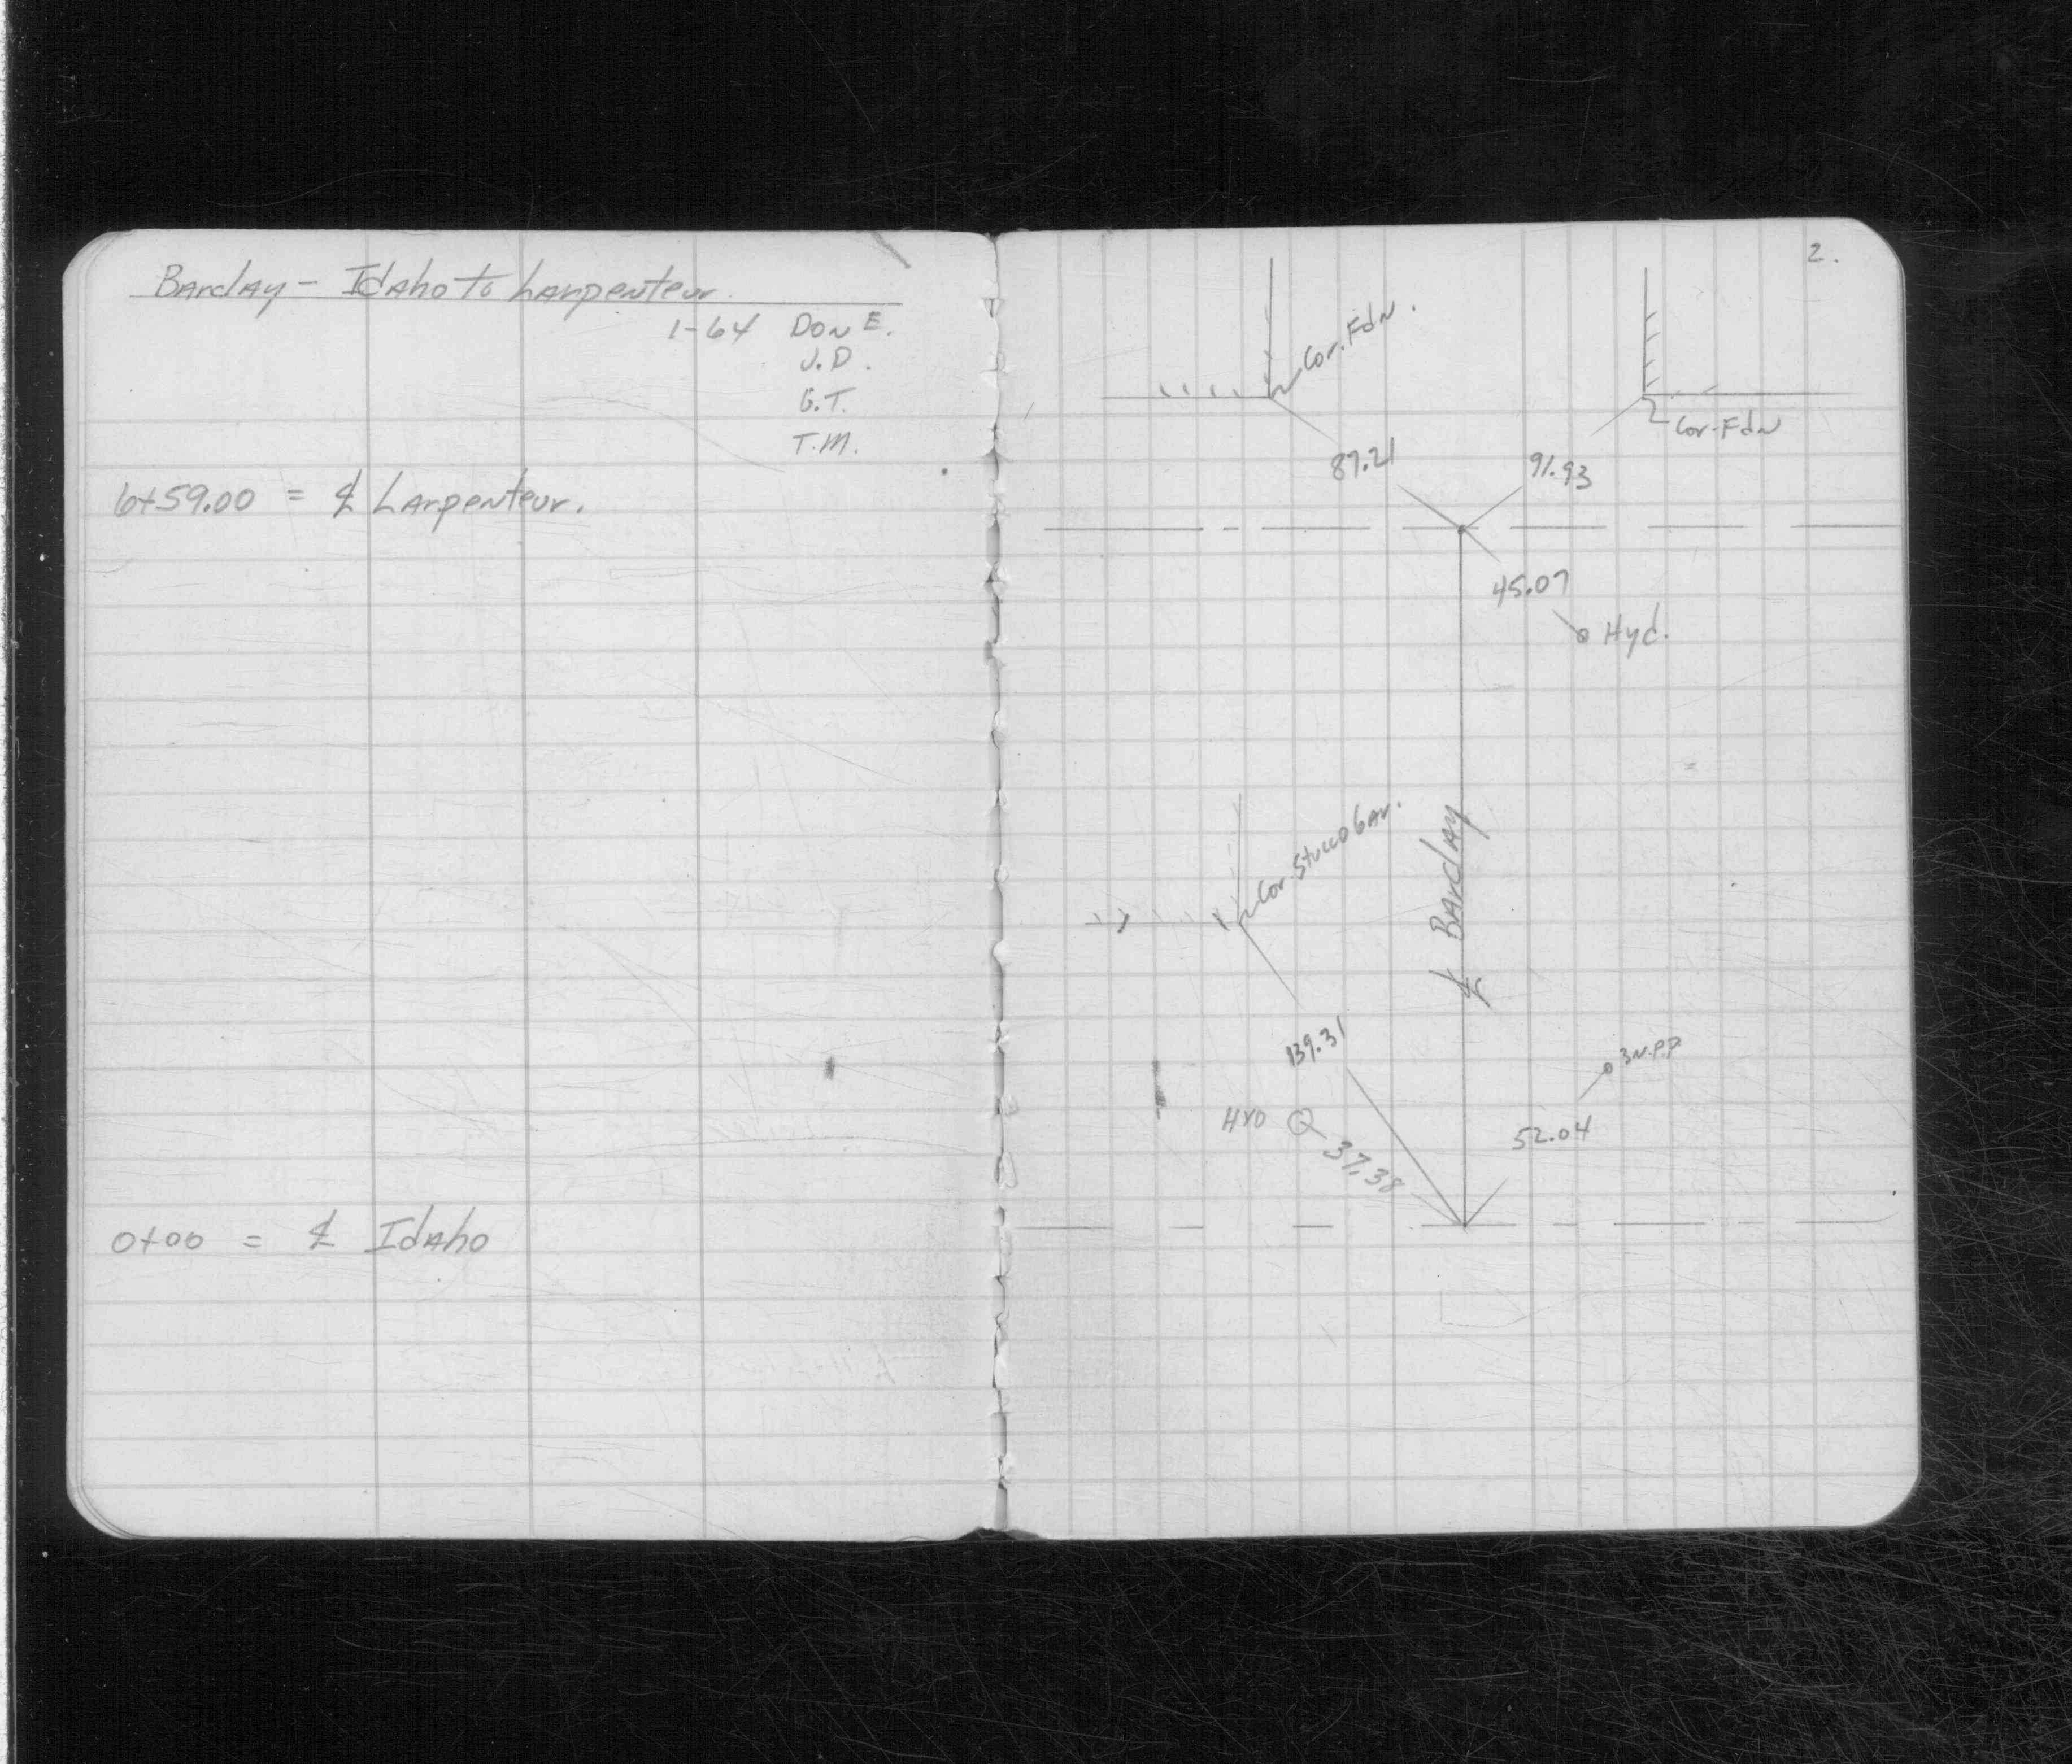 Barclay - Idaho to Larpenteur.
1-64 Don E.
J.D.
G.T.
T.M.
6+59.00 = ℄ Larpenteur.
0+00 = ℄ Idaho
2.
Cor. Fdn.
Cor. Fdn
87.21
91.93
45.07
Hyd.
Cor. Stucco Gar.
℄ Barclay
139.31
3N.P.P
HYD
37.38
52.04